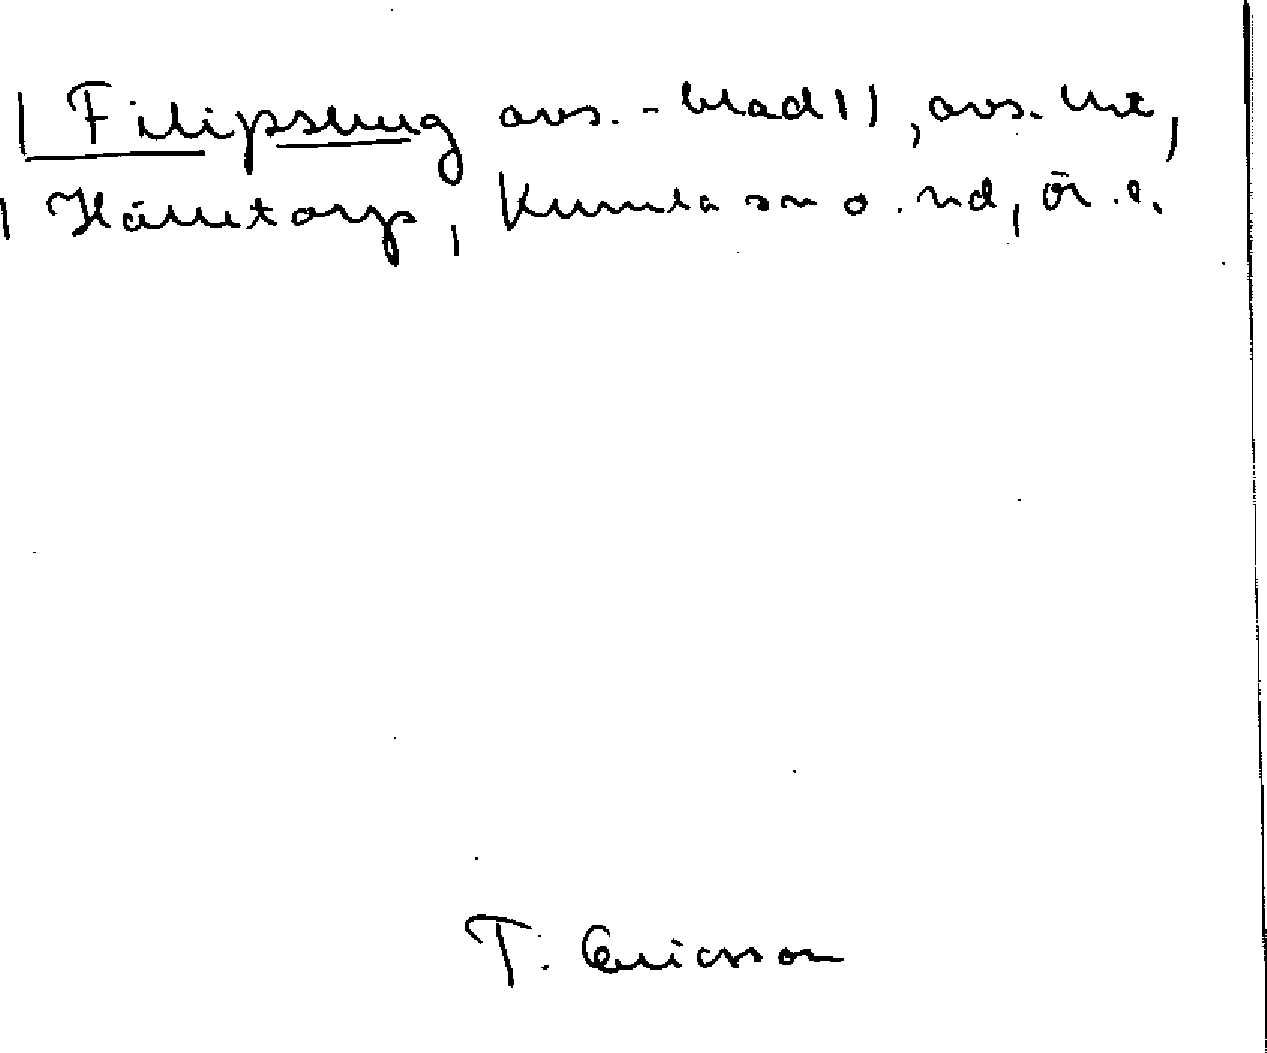 Filipsberg avs. - blad 11, avs. litt,
Hälletorp, Kumla sn o. hd, Ör. l.
T. Ericsson